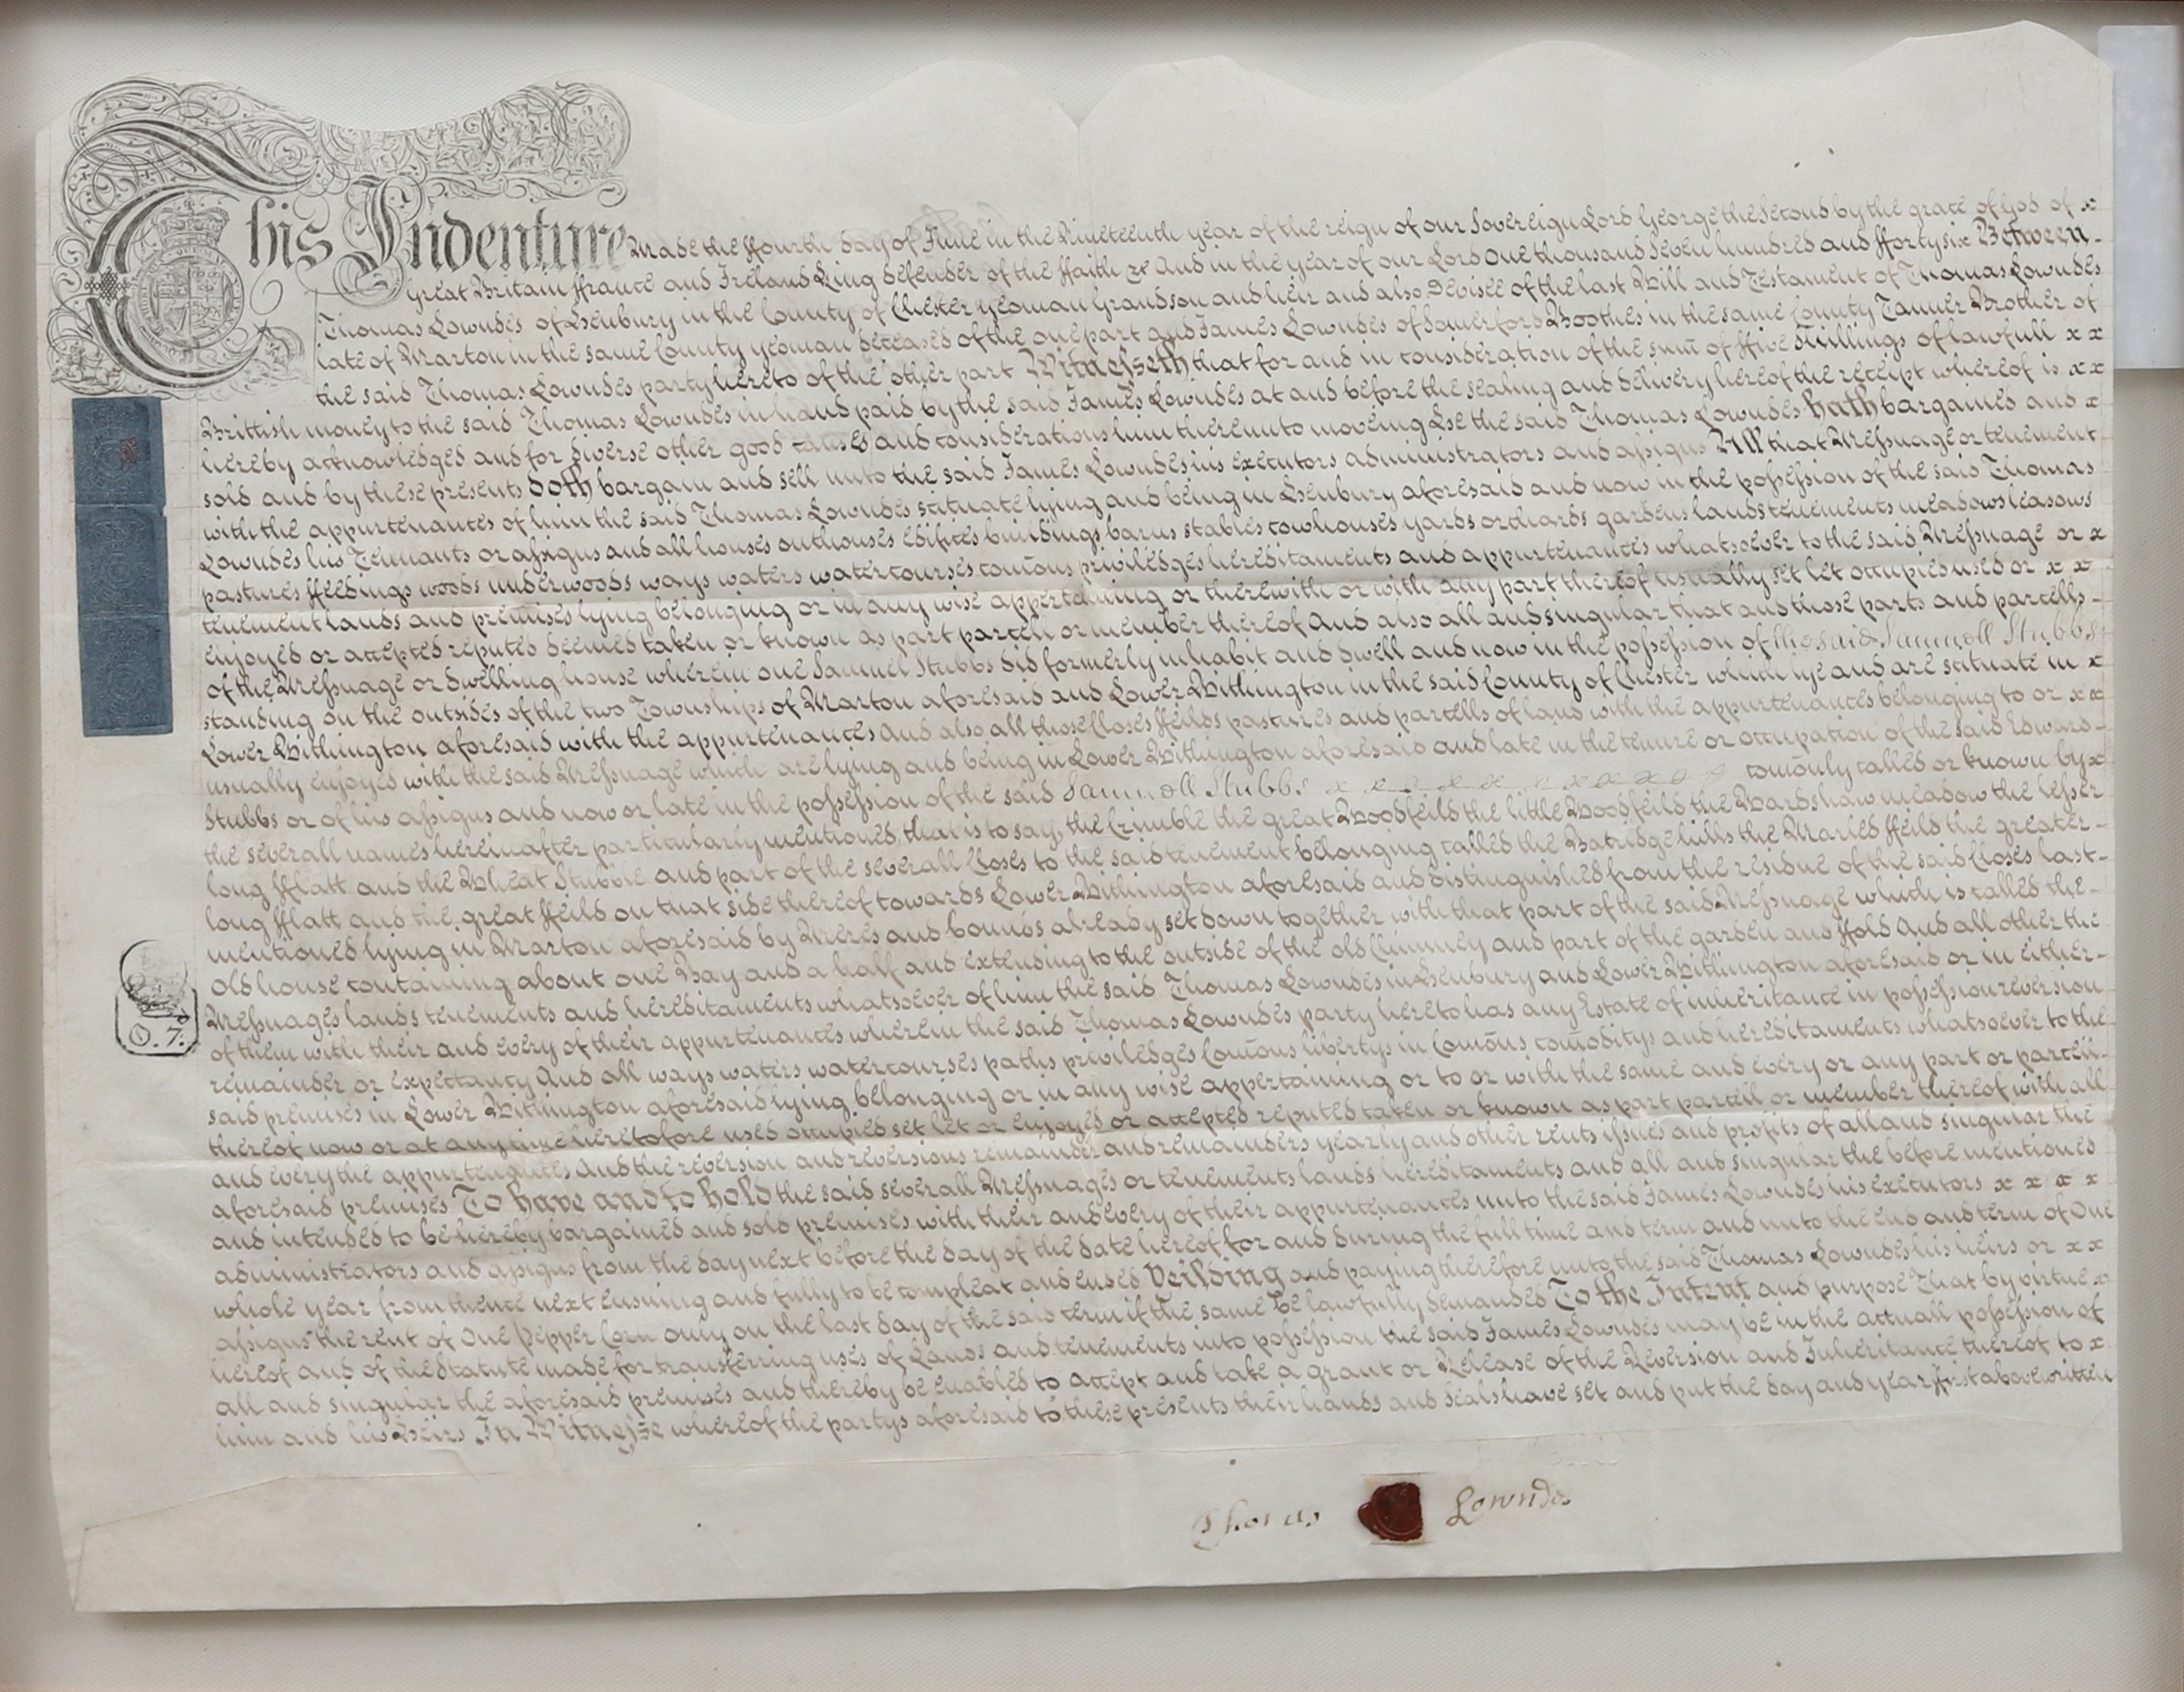 This Indenture Made the ffourth day of June in the Nineteenth year of the reign of our Sovereign Lord George the Second by the grace of God of x
Great Britain ffrance and Ireland King defender of the ffaith &c And in the year of our Lord One thousand seven hundred and ffortysix Between
Thomas Lowndes of Isenbury in the County of Chester yeoman Grandson and heir and also Devisee of the last Will and Testament of Thomas Lowndes
late of Marton in the same County yeoman deceased of the one part and James Lowndes of Somerford Boothes in the same County Tanner Brother of
the said Thomas Lowndes party hereto of the other part Witnesseth that for and in consideration of the sum of ffive Shillings of lawfull x x
Brittish money to the said Thomas Lowndes in hand paid by the said James Lowndes at and before the sealing and delivery hereof the receipt whereof is x x
hereby acknowledged and for diverse other good causes and considerations him thereunto moveing He the said Thomas Lowndes hath bargained and x
sold and by these presents doth bargain and sell unto the said James Lowndes his executors administrators and assigns All that Messuage or tenement
with the appurtenances of him the said Thomas Lowndes scituate lying and being in Isenbury aforesaid and now in the possession of the said Thomas
Lowndes his Tennants or assigns and all houses outhouses edifices buildings barns stables cowhouses yards orchards gardens lands tenements meadows leasows
pastures ffeedings woods underwoods ways waters watercourses comons priviledges hereditaments and appurtenances whatsoever to the said Messuage or x
tenement lands and premises lying belonging or in any wise appertaining or therewith or with any part thereof usually set let occupied used or x x
enjoyed or accepted reputed deemed taken or known as part parcell or member thereof And also all and singular that and those parts and parcells
of the Messuage or dwelling house wherein one Samuel Stubbs did formerly inhabit and dwell and now in the possession of the said Samuell Stubbs
standing on the outsides of the two Townships of Marton aforesaid and Lower Withington in the said County of Chester which lye and are scituate in x
Lower Withington aforesaid with the appurtenances And also all those Closes ffeilds pastures and parcells of land with the appurtenances belonging to or x x
usually enjoyed with the said Messuage which are lying and being in Lower Withington aforesaid and late in the tenure or occupation of the said Edward
Stubbs or of his assigns and now or late in the possession of the said Samuell Stubbs x x x x x x x x x x x comonly called or known by x
the severall names hereinafter particularly mentioned, that is to say, the Crimble the great Woodfeild the little Woodfeild the Wardshaw meadow the lesser
long fflatt and the Wheat Stubble and part of the severall Closes to the said tenement belonging called the Hatridge hills the Marled ffeild the greater
long fflatt and the great ffeild on that side thereof towards Lower Withington aforesaid and distinguished from the residue of the said Closes last
mentioned lying in Marton aforesaid by Meres and bounds already set down together with that part of the said Messuage which is called the
old house containing about one Bay and a half and extending to the outside of the old Chimney and part of the garden and ffold And all other the
Messuages lands tenements and hereditaments whatsoever of him the said Thomas Lowndes in Isenbury and Lower Withington aforesaid or in either
of them with their and every of their appurtenances wherein the said Thomas Lowndes party hereto has any Estate of inheritance in possession reversion
remainder or expectancy And all ways waters watercourses paths priviledges Comons libertys in Comons comoditys and hereditaments whatsoever to the
said premises in Lower Withington aforesaid lying belonging or in any wise appertaining or to or with the same and every or any part or parcell
thereof now or at any time heretofore used occupied set let or enjoyed or accepted reputed taken or known as part parcell or member thereof with all
and every the appurtenances And the reversion and reversions remainder and remainders yearly and other rents issues and profits of all and singular the
aforesaid premises To have and to hold the said severall Messuages or tenements lands hereditaments and all and singular the before mentioned
and intended to be hereby bargained and sold premises with their and every of their appurtenances unto the said James Lowndes his executors x x x x
administrators and assigns from the day next before the day of the date hereof for and during the full time and term and unto the end and term of One
whole year from thence next ensuing and fully to be compleat and ended Yeilding and paying therefore unto the said Thomas Lowndes his heirs or x x
assigns the rent of One Pepper Corn only on the last day of the said term if the same be lawfully demanded To the Intent and purpose That by virtue x
hereof and of the Statute made for transferring uses of Lands and tenements into possession the said James Lowndes may be in the actuall possession of
all and singular the aforesaid premises and thereby be enabled to accept and take a grant or Release of the Reversion and Inheritance thereof to x
him and his Heirs In Witnesse whereof the partys aforesaid to these presents their hands and seals have set and put the day and year ffirst above written
O. 7.
Thomas Lowndes